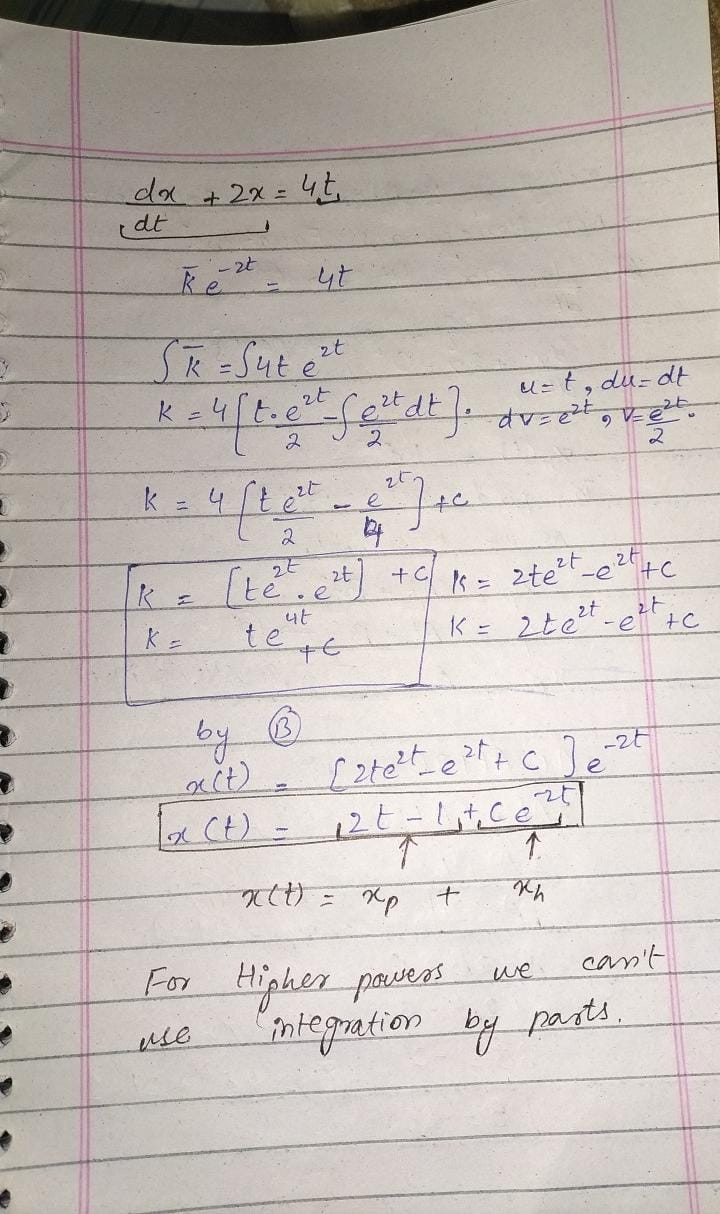 dx/dt + 2x = 4t
k̅ e^-2t = 4t
∫k̅ = ∫4t e^2t
k = 4[t.e^2t/2 - ∫e^2t/2 dt]. u=t, du=dt
dv=e^2t, v=e^2t/2.
k = 4[t e^2t/2 - e^2t/4] +c
k = [te^2t . e^2t] +c k = 2te^2t - e^2t + c
k = te^4t + c k = 2te^2t - e^2t + c
by Ⓑ
x(t) = [2te^2t - e^2t + c]e^-2t
x(t) = 2t - 1 + Ce^-2t
↑ ↑
x(t) = xp + xh
For Higher powers we can't
use integration by parts.